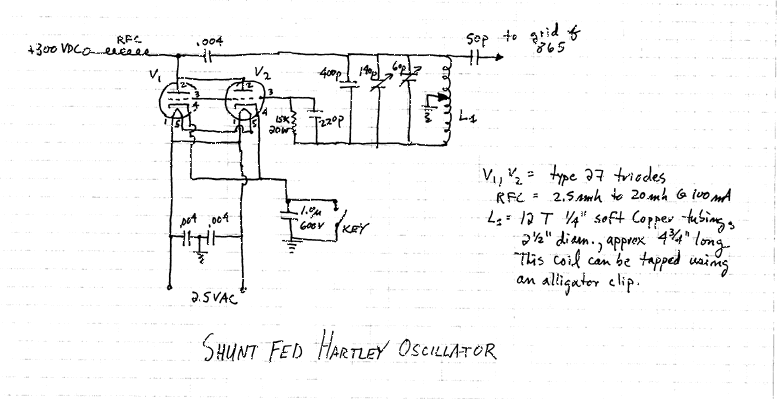 +300 VDC
RFC
.004
50p
to grid of
865
V1
V2
2
2
3
3
4
4
1
5
1
5
15K
20W
220p
400p
140p
60p
L1
1.0μ
600V
KEY
.004
.004
2.5VAC
V1, V2 = type 27 triodes
RFC = 2.5 mh to 20 mh @ 100 mA
L1 = 12 T 1/4" soft Copper tubing,
2 1/2" diam., approx 4 3/4" long.
This coil can be tapped using
an alligator clip.
SHUNT FED HARTLEY OSCILLATOR